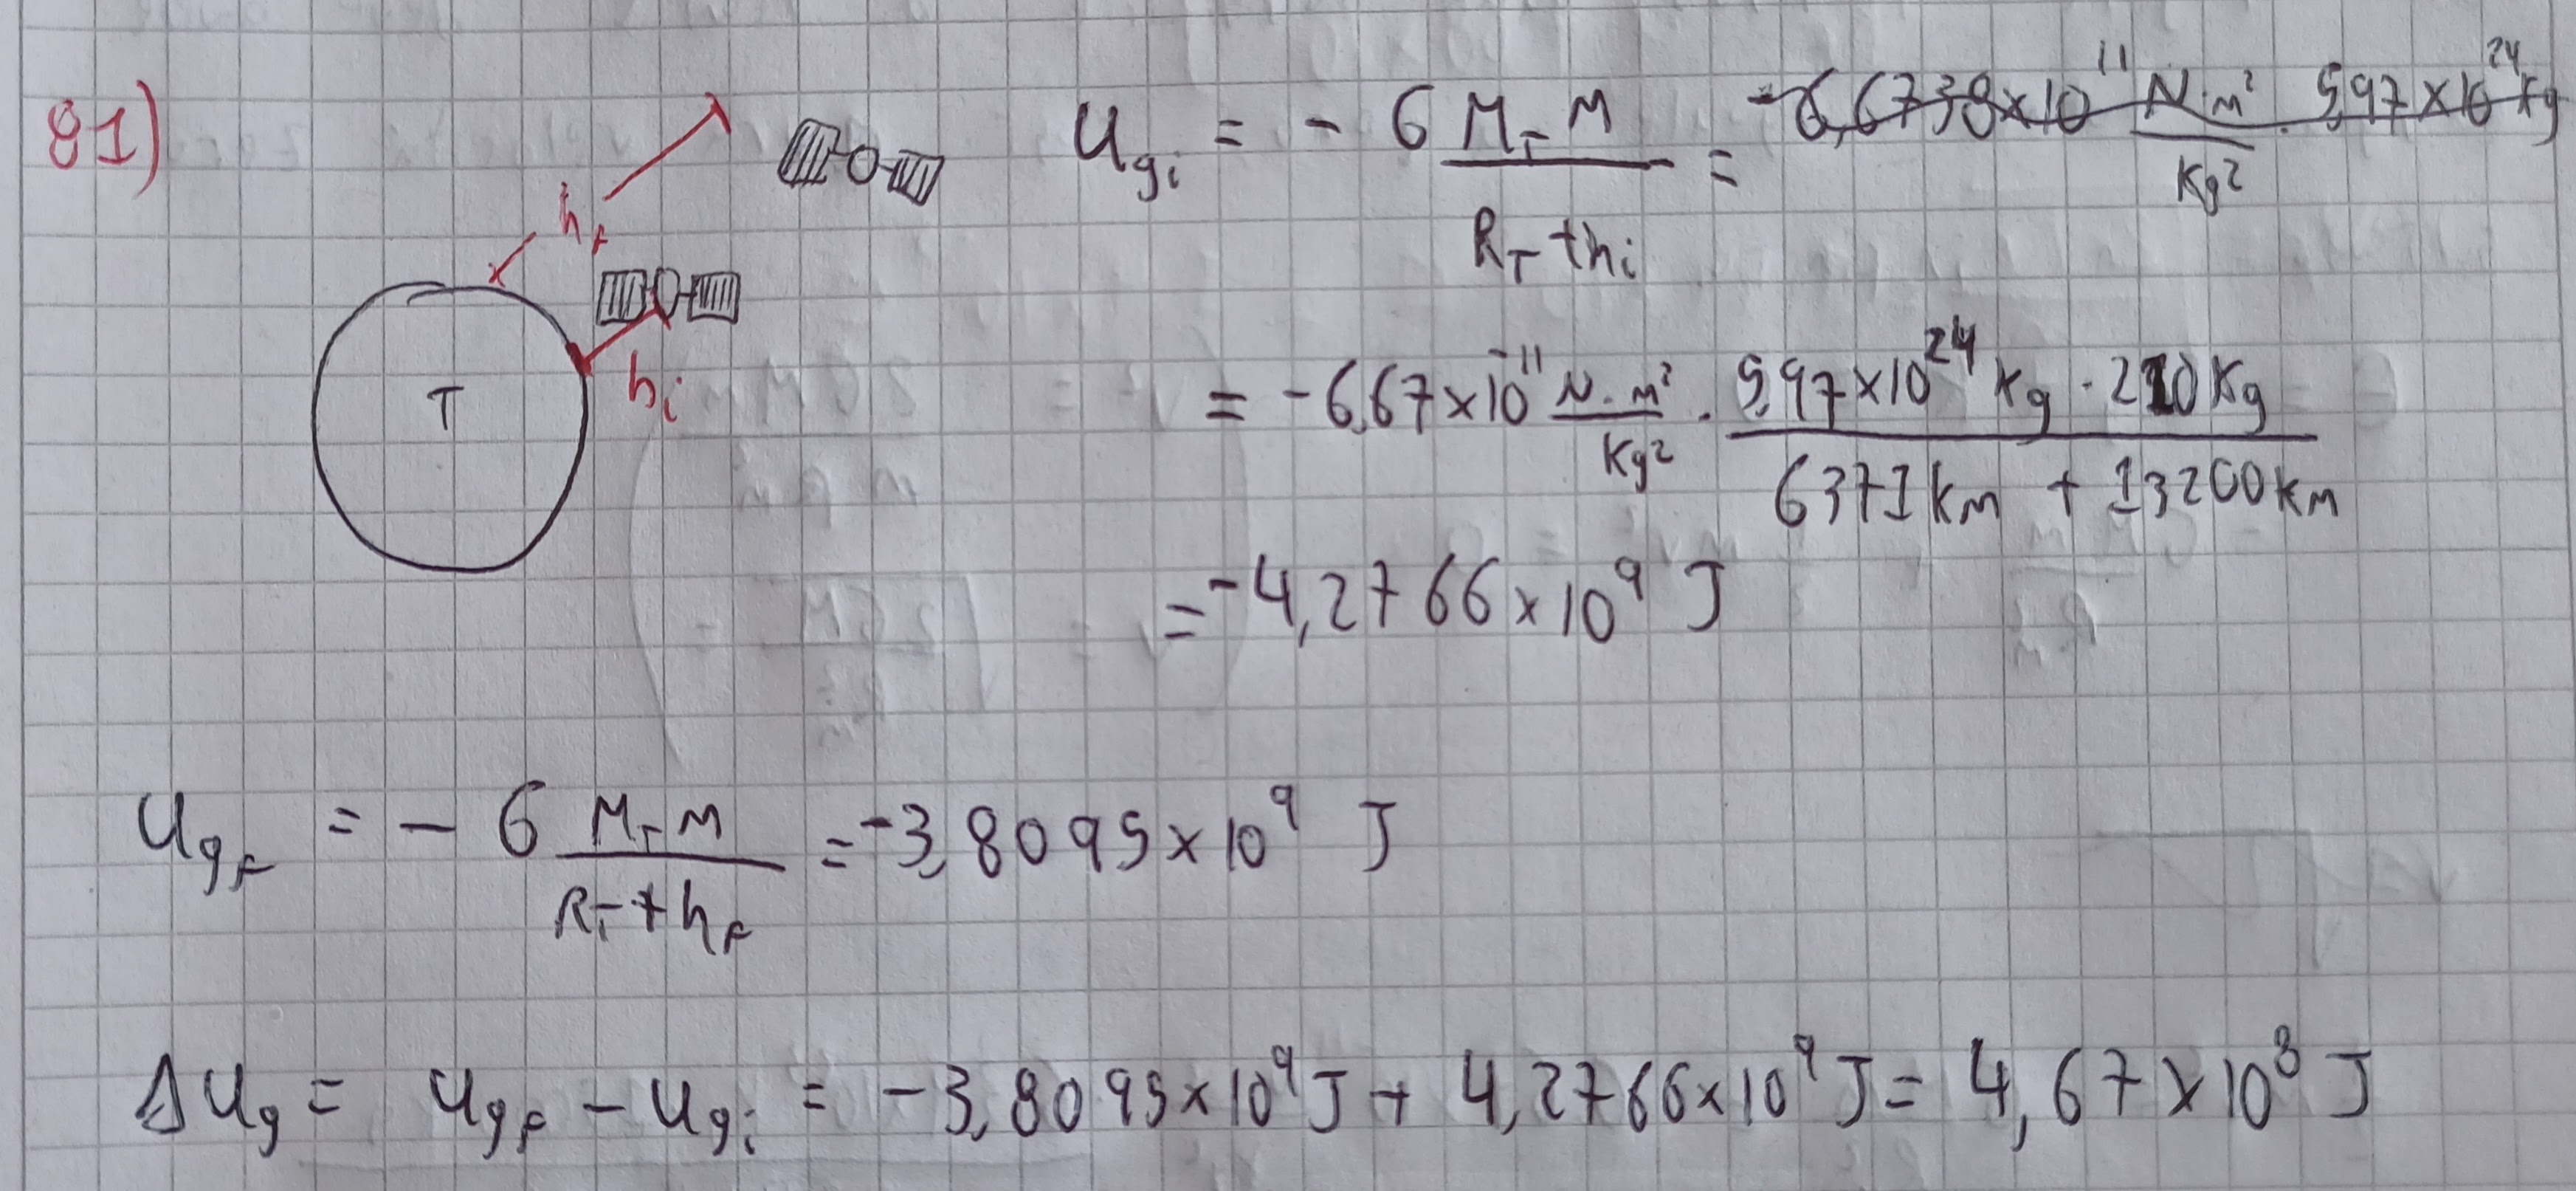 81)
U_gi = - G M_T M / (R_T + h_i) = -6,6738x10^11 N·m²/Kg² · 5,97x10^24 Kg
h_f
h_i
T
= -6,67x10^-11 N·m²/Kg² · 5,97x10^24 Kg · 210Kg / (6371Km + 13200Km)
= -4,2766x10^9 J
U_gF = - G M_T M / (R_T + h_F) = -3,8095x10^9 J
ΔU_g = U_gF - U_gi = -3,8095x10^9 J + 4,2766x10^9 J = 4,67x10^8 J